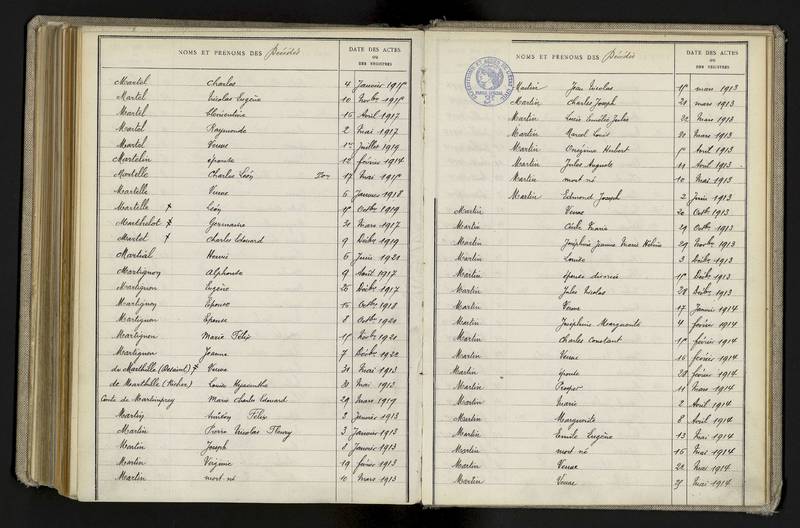 NOMS ET PRÉNOMS DES Décédés
DATE DES ACTES
OU
DES REGISTRES
Martel Charles 4 Janvier 1915
Martel Nicolas Eugène 10 Novbre 1915
Martel 15 Avril 1917
Martel Raymonde 2 Mai 1917
Martel Veuve 1er Juillet 1919
Martelin épouse 12 février 1914
Martelle Charles Léon 17 Mai 1915
Martelle Veuve 6 Janvier 1918
Martelle x Léon 15 Octbre 1919
Marthelot x Germaine 21 Mars 1917
Martet x Charles Edouard 9 Décbre 1919
Martial Henri 6 Juin 1920
Martignon Alphonse 9 Août 1917
Martignon Eugène 26 Décbre 1917
Martignon Epouse 15 Octbre 1918
Martignon Epouse 8 Octbre 1920
Martignon Marie Félix 15 Novbre 1920
Martignon Jeanne 7 Décbre 1922
de Marthille x Veuve 21 Mai 1913
de Marthille Louise Hyacinthe 30 Mai 1913
Comte de Martimprey Marie Charles Edouard 29 Mars 1919
Martin Félix 2 Janvier 1913
Martin Pierre Nicolas Fleury 3 Janvier 1913
Martin Joseph 8 Janvier 1913
Martin Virginie 19 février 1913
Martin mort-né 10 Mars 1913
NOMS ET PRÉNOMS DES Décédés
DATE DES ACTES
OU
DES REGISTRES
Martin Jean Nicolas 15 mars 1913
Martin Charles Joseph 21 mars 1913
Martin Louis Emile Jules 22 Mars 1913
Martin Marcel Louis 30 Mars 1913
Martin Onézime Hubert 5 Avril 1913
Martin Jules Auguste 11 Avril 1913
Martin mort-né 10 Mai 1913
Martin Edmond Joseph 2 Juin 1913
Martin Veuve 20 Octbre 1913
Martin Marie 29 Octbre 1913
Martin Joséphine Jeanne Marie 29 Novbre 1913
Martin Louise 3 Décbre 1913
Martin épouse divorcée 15 Décbre 1913
Martin Jules Nicolas 28 Décbre 1913
Martin Veuve 17 Janvier 1914
Martin Joséphine Marguerite 4 février 1914
Martin Charles Constant 15 février 1914
Martin Veuve 16 février 1914
Martin épouse 28 février 1914
Martin Prosper 11 Mars 1914
Martin Marie 2 Avril 1914
Martin Marguerite 8 Avril 1914
Martin Emile Eugène 13 Mai 1914
Martin mort-né 16 Mai 1914
Martin Veuve 22 Mai 1914
Martin Veuve 25 Mai 1914